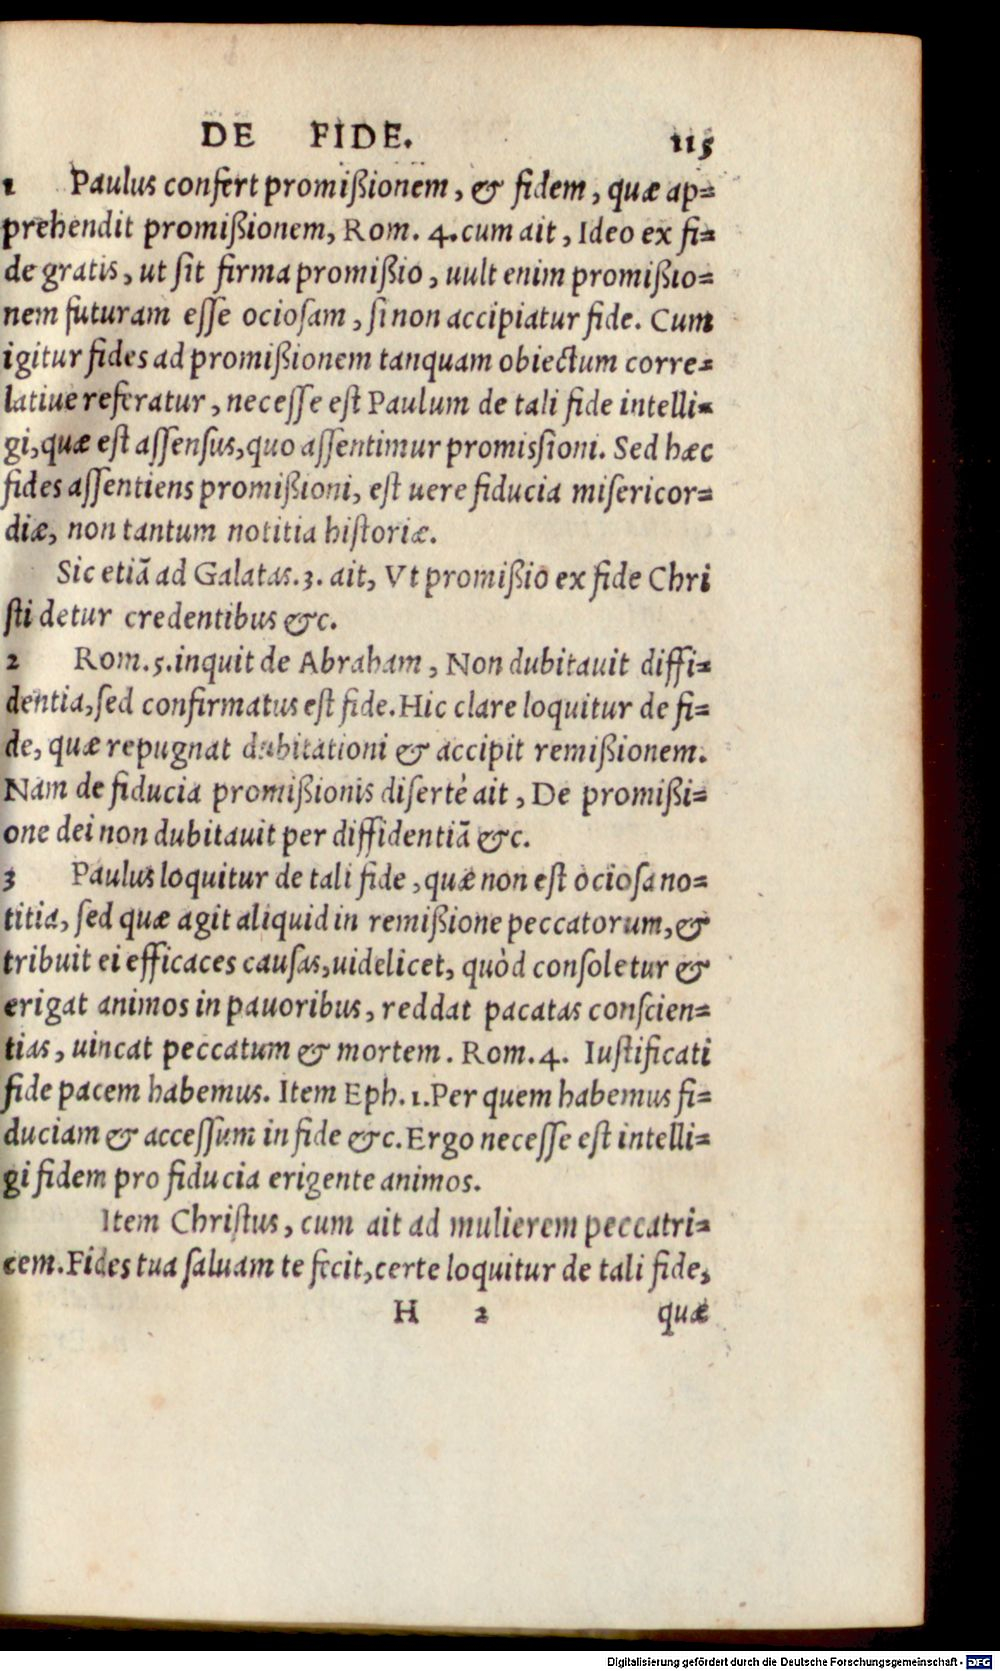 DE FIDE. 115
1 Paulus confert promißionem, & fidem, quæ ap=
prehendit promißionem, Rom. 4. cum ait, Ideo ex fi=
de gratis, ut sit firma promißio, uult enim promißio=
nem futuram esse ociosam, si non accipiatur fide. Cum
igitur fides ad promißionem tanquam obiectum corre=
latiue referatur, necesse est Paulum de tali fide intelli=
gi, quæ est assensus, quo assentimur promissioni. Sed hæc
fides assentiens promißioni, est uere fiducia misericor=
diæ, non tantum notitia historiæ.
Sic etiã ad Galatas. 3. ait, Vt promißio ex fide Chri
sti detur credentibus &c.
2 Rom. 5. inquit de Abraham, Non dubitauit diffi=
dentia, sed confirmatus est fide. Hic clare loquitur de fi=
de, quæ repugnat dubitationi & accipit remißionem.
Nam de fiducia promißionis disertè ait, De promißi=
one dei non dubitauit per diffidentiã &c.
3 Paulus loquitur de tali fide, quæ non est ociosa no=
titia, sed quæ agit aliquid in remißione peccatorum, &
tribuit ei efficaces causas, uidelicet, quòd consoletur &
erigat animos in pauoribus, reddat pacatas conscien=
tias, uincat peccatum & mortem. Rom. 4. Iustificati
fide pacem habemus. Item Eph. 1. Per quem habemus fi=
duciam & accessum in fide &c. Ergo necesse est intelli=
gi fidem pro fiducia erigente animos.
Item Christus, cum ait ad mulierem peccatri=
cem. Fides tua saluam te fecit, certe loquitur de tali fide,
H 2 quæ
Digitalisierung gefördert durch die Deutsche Forschungsgemeinschaft - DFG